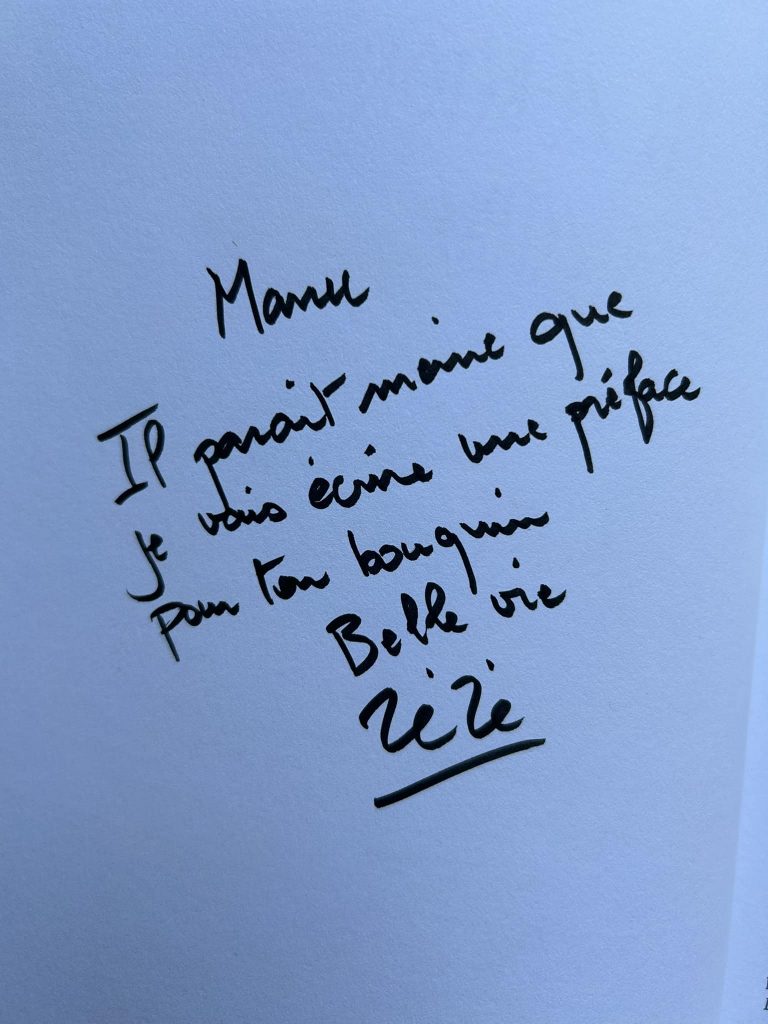 Manu
Il parait meme que
je vais écrire une préface
pour ton bouquin
Belle vie
Zézé